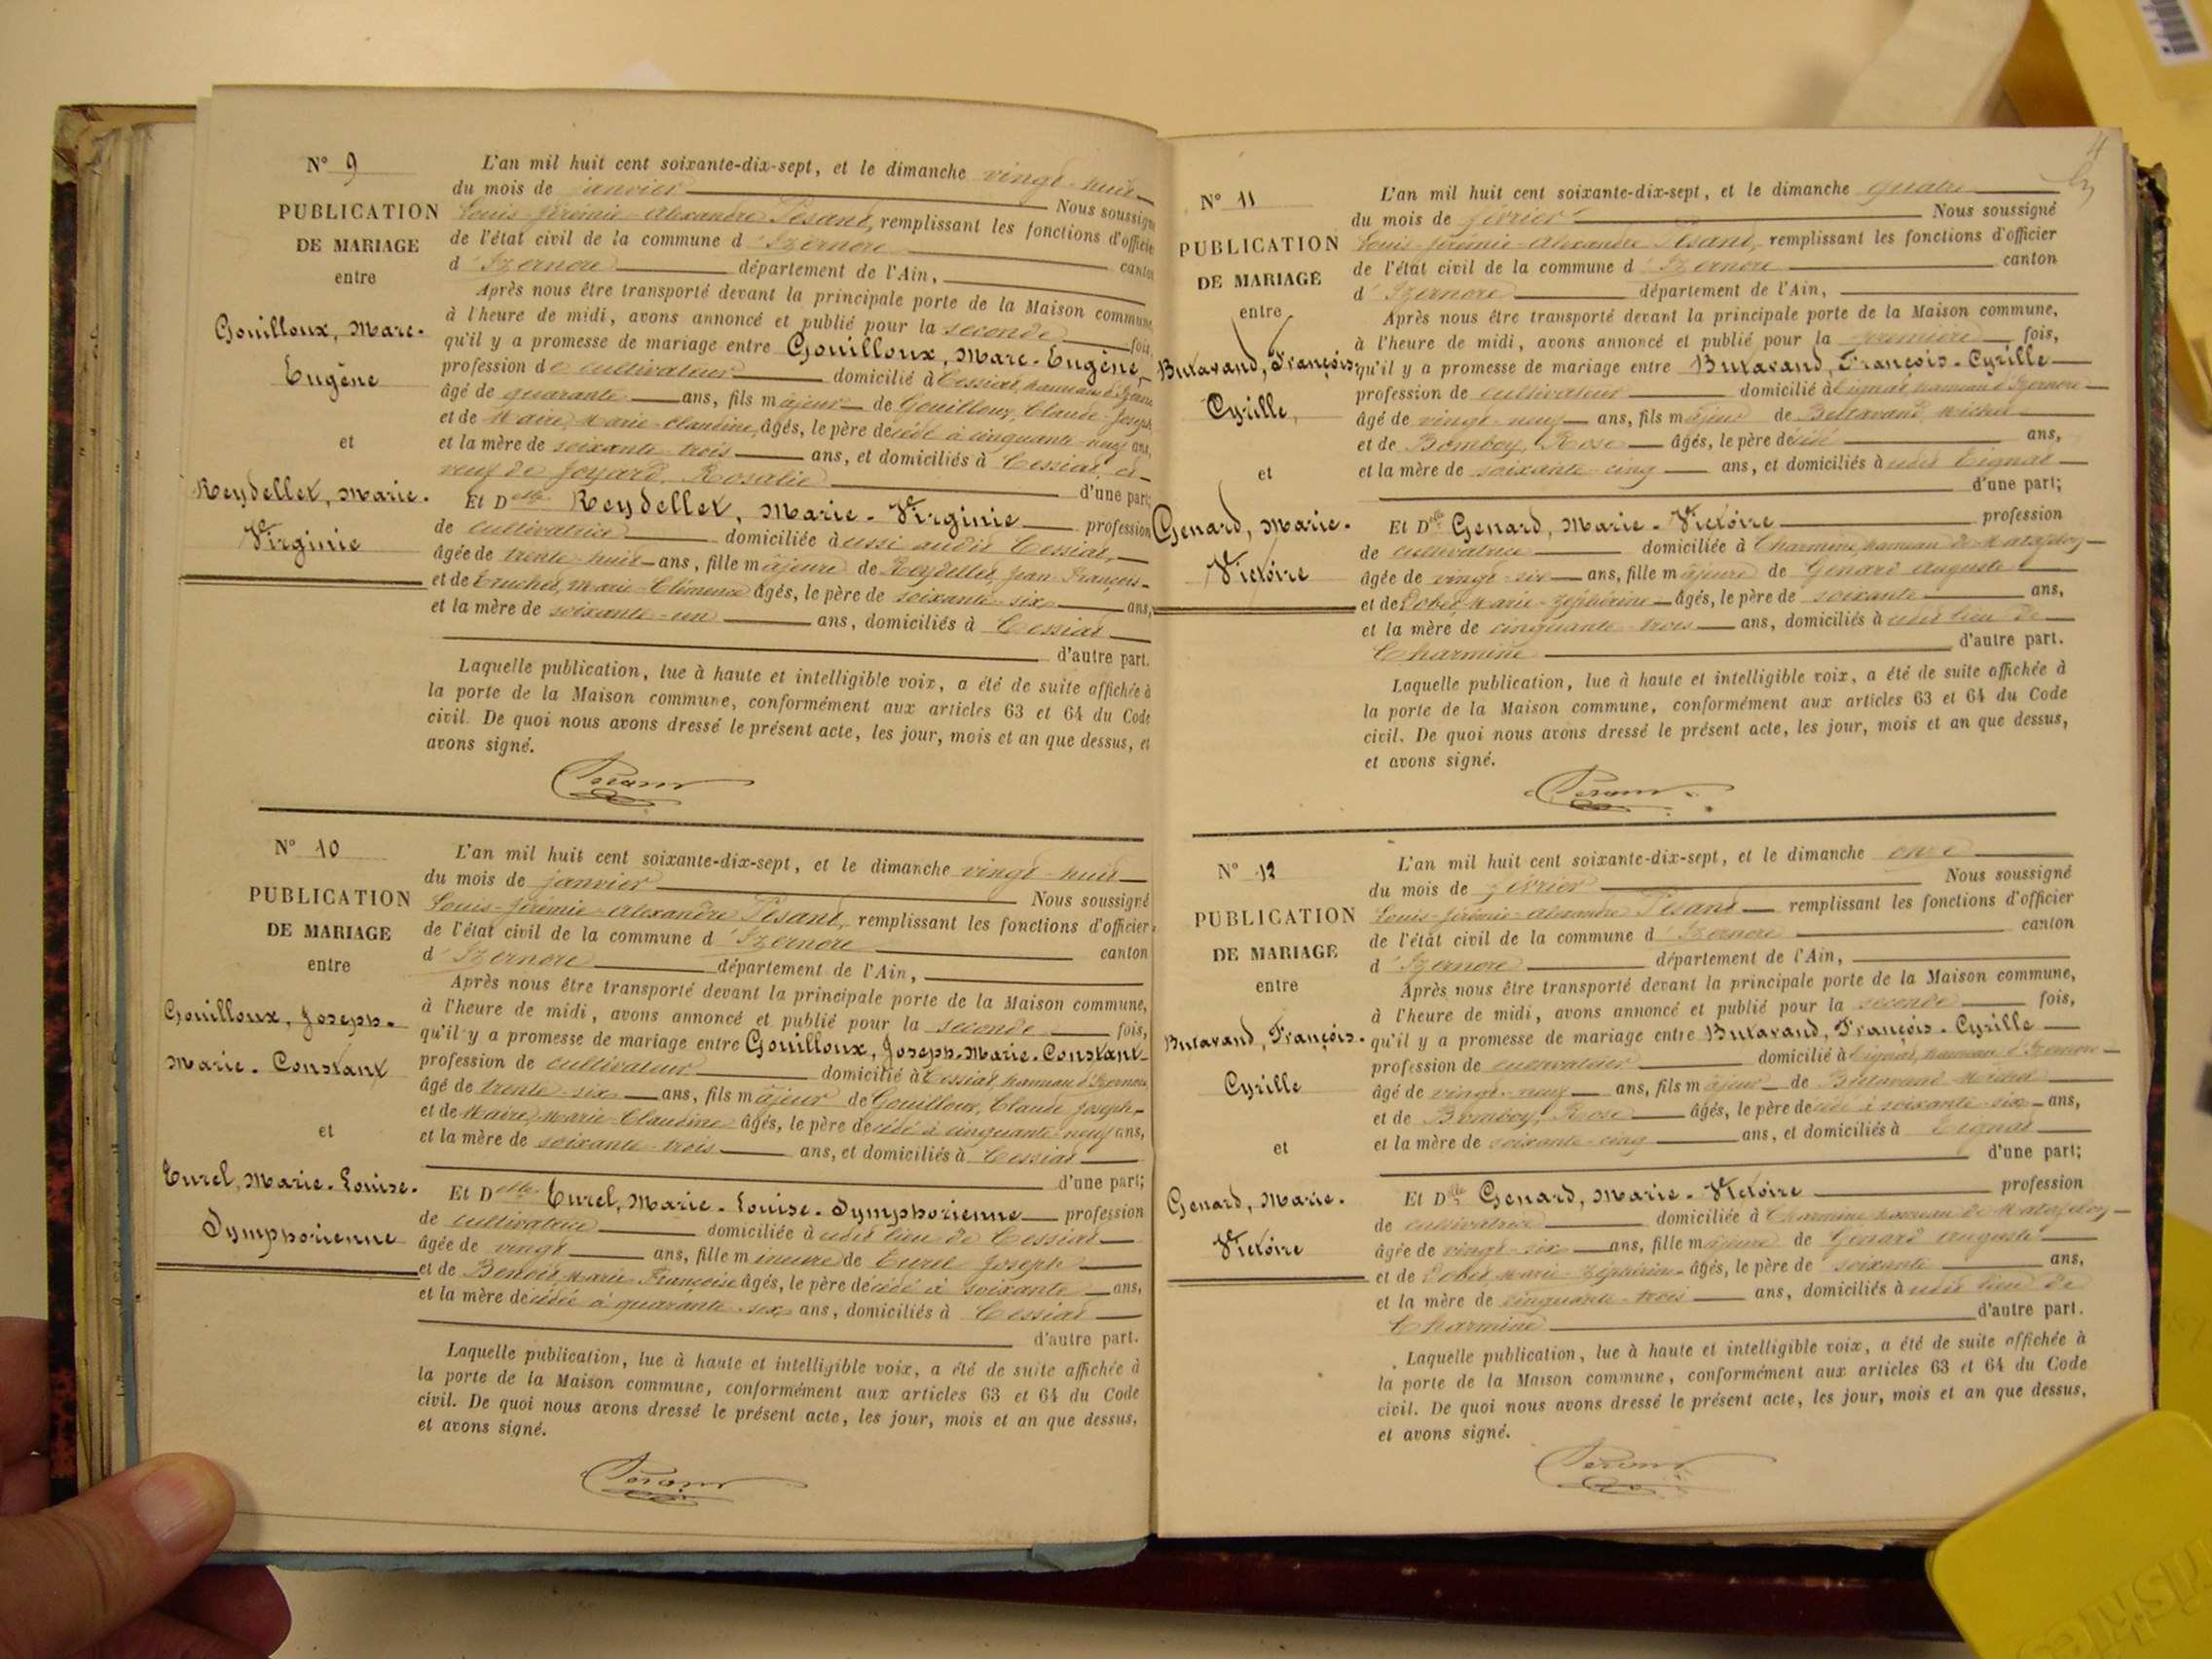 N° 9
PUBLICATION
DE MARIAGE
entre
Gouilloux, Marc-
Eugène
et
Reydellet, Marie-
Virginie
L'an mil huit cent soixante-dix-sept, et le dimanche vingt-huit
du mois de janvier Nous soussigné
Louis-Jérémie-Alexandre Pesant, remplissant les fonctions d'officier
de l'état civil de la commune d'Izernore canton
d'Izernore département de l'Ain,
Après nous être transporté devant la principale porte de la Maison commune,
à l'heure de midi, avons annoncé et publié pour la seconde fois,
qu'il y a promesse de mariage entre Gouilloux, Marc-Eugène,
profession de cultivateur domicilié à Cessiat, hameau d'Izernore
âgé de quarante ans, fils majeur de Gouilloux, Claude-Joseph
et de Maire, Marie-Claudine, âgés, le père décédé à cinquante-neuf ans,
et la mère de soixante-trois ans, et domiciliés à Cessiat, et
veuf de Joyard, Rosalie d'une part;
Et Delle Reydellet, Marie-Virginie profession
de cultivatrice domiciliée à ussi audit Cessiat,
âgée de trente-huit ans, fille majeure de Reydellet, Jean-François
et de Truchet, Marie-Clémence âgés, le père de soixante-six ans,
et la mère de soixante-un ans, domiciliés à Cessiat
d'autre part.
Laquelle publication, lue à haute et intelligible voix, a été de suite affichée à
la porte de la Maison commune, conformément aux articles 63 et 64 du Code
civil. De quoi nous avons dressé le présent acte, les jour, mois et an que dessus, et
avons signé.
Pesant
N° 10
PUBLICATION
DE MARIAGE
entre
Gouilloux, Joseph-
Marie-Constant
et
Turel, Marie-Louise-
Symphorienne
L'an mil huit cent soixante-dix-sept, et le dimanche vingt-huit
du mois de janvier Nous soussigné
Louis-Jérémie-Alexandre Pesant, remplissant les fonctions d'officier
de l'état civil de la commune d'Izernore canton
d'Izernore département de l'Ain,
Après nous être transporté devant la principale porte de la Maison commune,
à l'heure de midi, avons annoncé et publié pour la seconde fois,
qu'il y a promesse de mariage entre Gouilloux, Joseph-Marie-Constant
profession de cultivateur domicilié à Cessiat, hameau d'Izernore
âgé de trente-six ans, fils majeur de Gouilloux, Claude-Joseph
et de Maire, Marie-Claudine âgés, le père décédé à cinquante-neuf ans,
et la mère de soixante-trois ans, et domiciliés à Cessiat
d'une part;
Et Delle Turel, Marie-Louise-Symphorienne profession
de cultivatrice domiciliée à udit lieu de Cessiat
âgée de vingt ans, fille mineure de Turel Joseph
et de Benoit, Marie-Françoise âgés, le père décédé à soixante ans,
et la mère décédée à quarante-six ans, domiciliés à Cessiat
d'autre part.
Laquelle publication, lue à haute et intelligible voix, a été de suite affichée à
la porte de la Maison commune, conformément aux articles 63 et 64 du Code
civil. De quoi nous avons dressé le présent acte, les jour, mois et an que dessus,
et avons signé.
Pesant
4
N° 11
PUBLICATION
DE MARIAGE
entre
Butavand, François-
Cyrille,
et
Genard, Marie-
Victoire
L'an mil huit cent soixante-dix-sept, et le dimanche quatre
du mois de février Nous soussigné
Louis-Jérémie-Alexandre Pesant, remplissant les fonctions d'officier
de l'état civil de la commune d'Izernore canton
d'Izernore département de l'Ain,
Après nous être transporté devant la principale porte de la Maison commune,
à l'heure de midi, avons annoncé et publié pour la première fois,
qu'il y a promesse de mariage entre Butavand, François-Cyrille
profession de cultivateur domicilié à Tignat, hameau d'Izernore
âgé de vingt-neuf ans, fils majeur de Butavand, Michel
et de Bomboy, Rose âgés, le père décédé ans,
et la mère de soixante-cinq ans, et domiciliés à udit Tignat
d'une part;
Et Delle Genard, Marie-Victoire profession
de cultivatrice domiciliée à Charmine, hameau de Matafelon
âgée de vingt-six ans, fille majeure de Genard Auguste
et de Marie-Zéphirine âgés, le père de soixante ans,
et la mère de cinquante-trois ans, domiciliés à udit lieu de
Charmine d'autre part.
Laquelle publication, lue à haute et intelligible voix, a été de suite affichée à
la porte de la Maison commune, conformément aux articles 63 et 64 du Code
civil. De quoi nous avons dressé le présent acte, les jour, mois et an que dessus,
et avons signé.
Pesant
N° 12
PUBLICATION
DE MARIAGE
entre
Butavand, François-
Cyrille
et
Genard, Marie-
Victoire
L'an mil huit cent soixante-dix-sept, et le dimanche onze
du mois de février Nous soussigné
Louis-Jérémie-Alexandre Pesant remplissant les fonctions d'officier
de l'état civil de la commune d'Izernore canton
d'Izernore département de l'Ain,
Après nous être transporté devant la principale porte de la Maison commune,
à l'heure de midi, avons annoncé et publié pour la seconde fois,
qu'il y a promesse de mariage entre Butavand, François-Cyrille
profession de cultivateur domicilié à Tignat, hameau d'Izernore
âgé de vingt-neuf ans, fils majeur de Butavand Michel
et de Bomboy, Rose âgés, le père décédé à soixante-six ans,
et la mère de soixante-cinq ans, et domiciliés à Tignat
d'une part;
Et Delle Genard, Marie-Victoire profession
de cultivatrice domiciliée à Charmine hameau de Matafelon
âgée de vingt-six ans, fille majeure de Genard Auguste
et de Marie-Zéphirine âgés, le père de soixante ans,
et la mère de cinquante-trois ans, domiciliés à udit lieu de
Charmine d'autre part.
Laquelle publication, lue à haute et intelligible voix, a été de suite affichée à
la porte de la Maison commune, conformément aux articles 63 et 64 du Code
civil. De quoi nous avons dressé le présent acte, les jour, mois et an que dessus,
et avons signé.
Pesant